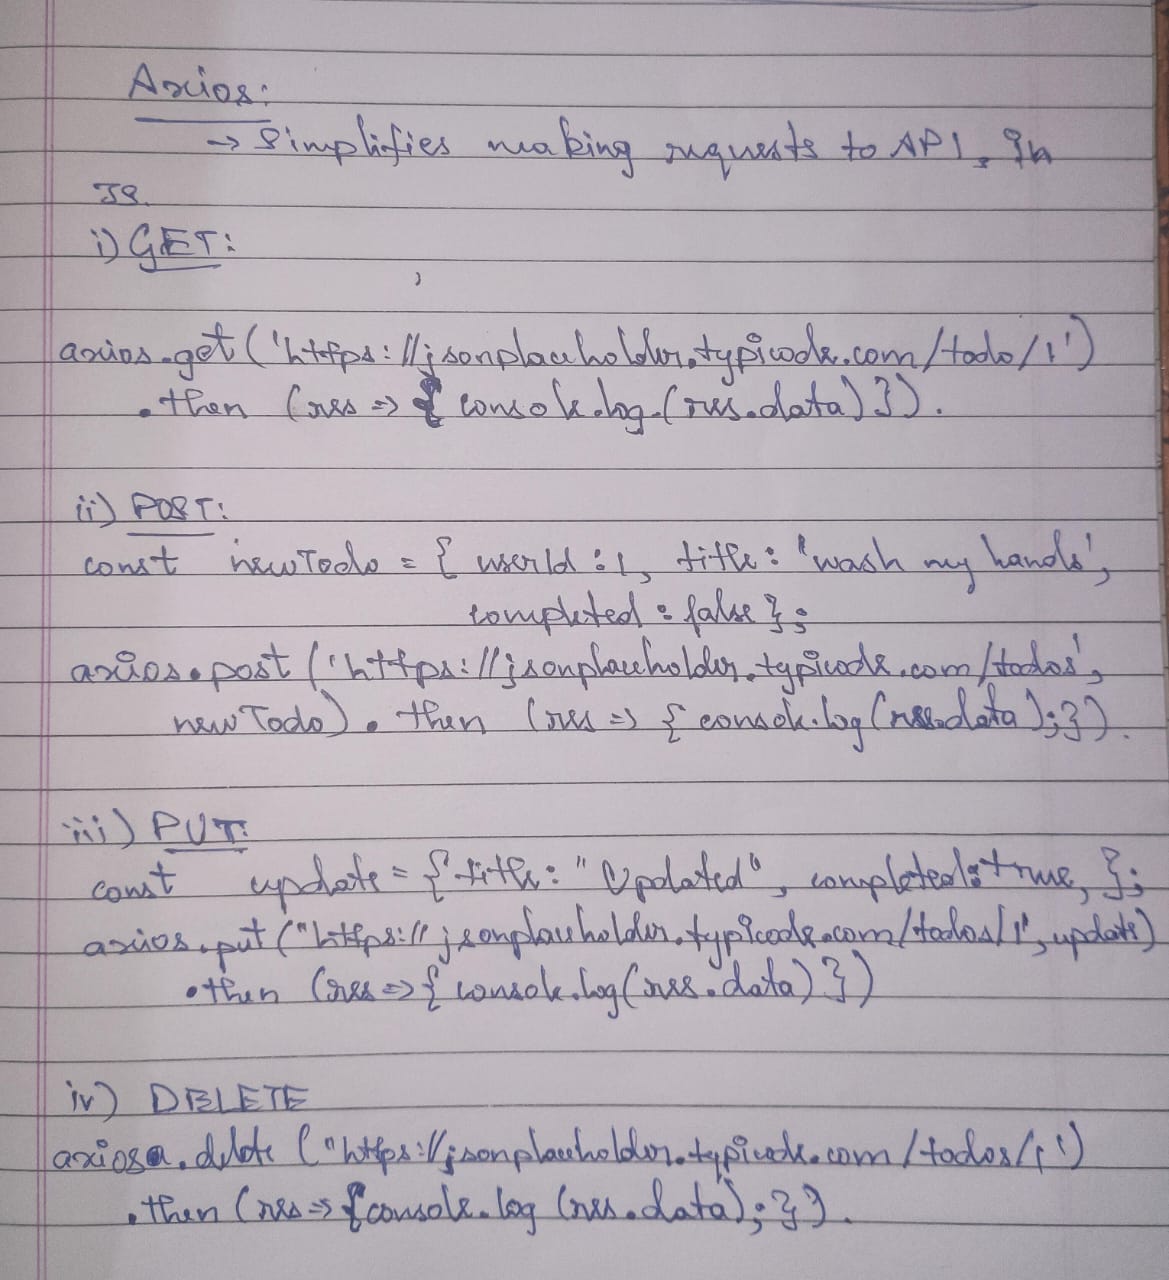 Axios:
→ Simplifies making requests to API, in
JS.
i) GET:
axios.get('https://jsonplaceholder.typicode.com/todo/1')
.then (res => { console.log.(res.data) }).
ii) POST:
const newTodo = { userId : 1, title : 'wash my hands',
completed : false };
axios.post ('https://jsonplaceholder.typicode.com/todos',
newTodo). then (res => { console.log (res.data ); }).
iii) PUT:
const update = { title: "Updated", completed: true, };
axios.put ("https://jsonplaceholder.typicode.com/todos/1", update)
.then (res => { console.log(res.data) })
iv) DELETE
axiosa.delete ("https://jsonplaceholder.typicode.com/todos/1')
.then (res => {console.log (res.data); }).